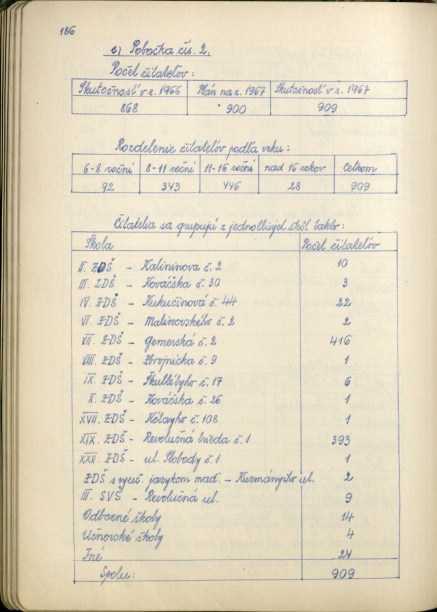 186
c) Pobočka čís. 2.
Počet čitateľov:
Skutočnosť v r. 1966 Plán na r. 1967 Skutočnosť v r. 1967
868 900 909
Rozdelenie čitateľov podľa veku:
6-8 roční 8-11 roční 11-16 roční nad 16 rokov Celkom
92 343 446 28 909
Čitatelia sa grupujú z jednotlivých škôl takto:
Škola Počet čitateľov
II. ZDŠ - Kalininova č. 2 10
III. ZDŠ - Kováčska č. 30 3
IV. ZDŠ - Kukučínová č. 44 22
VI. ZDŠ - Malinovského č. 2 2
VII. ZDŠ - Gemerská č. 2 416
VIII. ZDŠ - Zbrojnícka č. 9 1
IX. ZDŠ - č. 17 6
X. ZDŠ - Kováčska č. 26 1
XVII. ZDŠ - č. 108 1
XIX. ZDŠ - Revolučná č. 1 393
XXII. ZDŠ - ul. Slobody č. 1 1
ZDŠ s vyuč. jazykom maď. - Kuzmányiho ul. 2
III. SVŠ - Revolučná ul. 9
Odborné školy 14
Učňovské školy 4
Iné 24
Spolu: 909